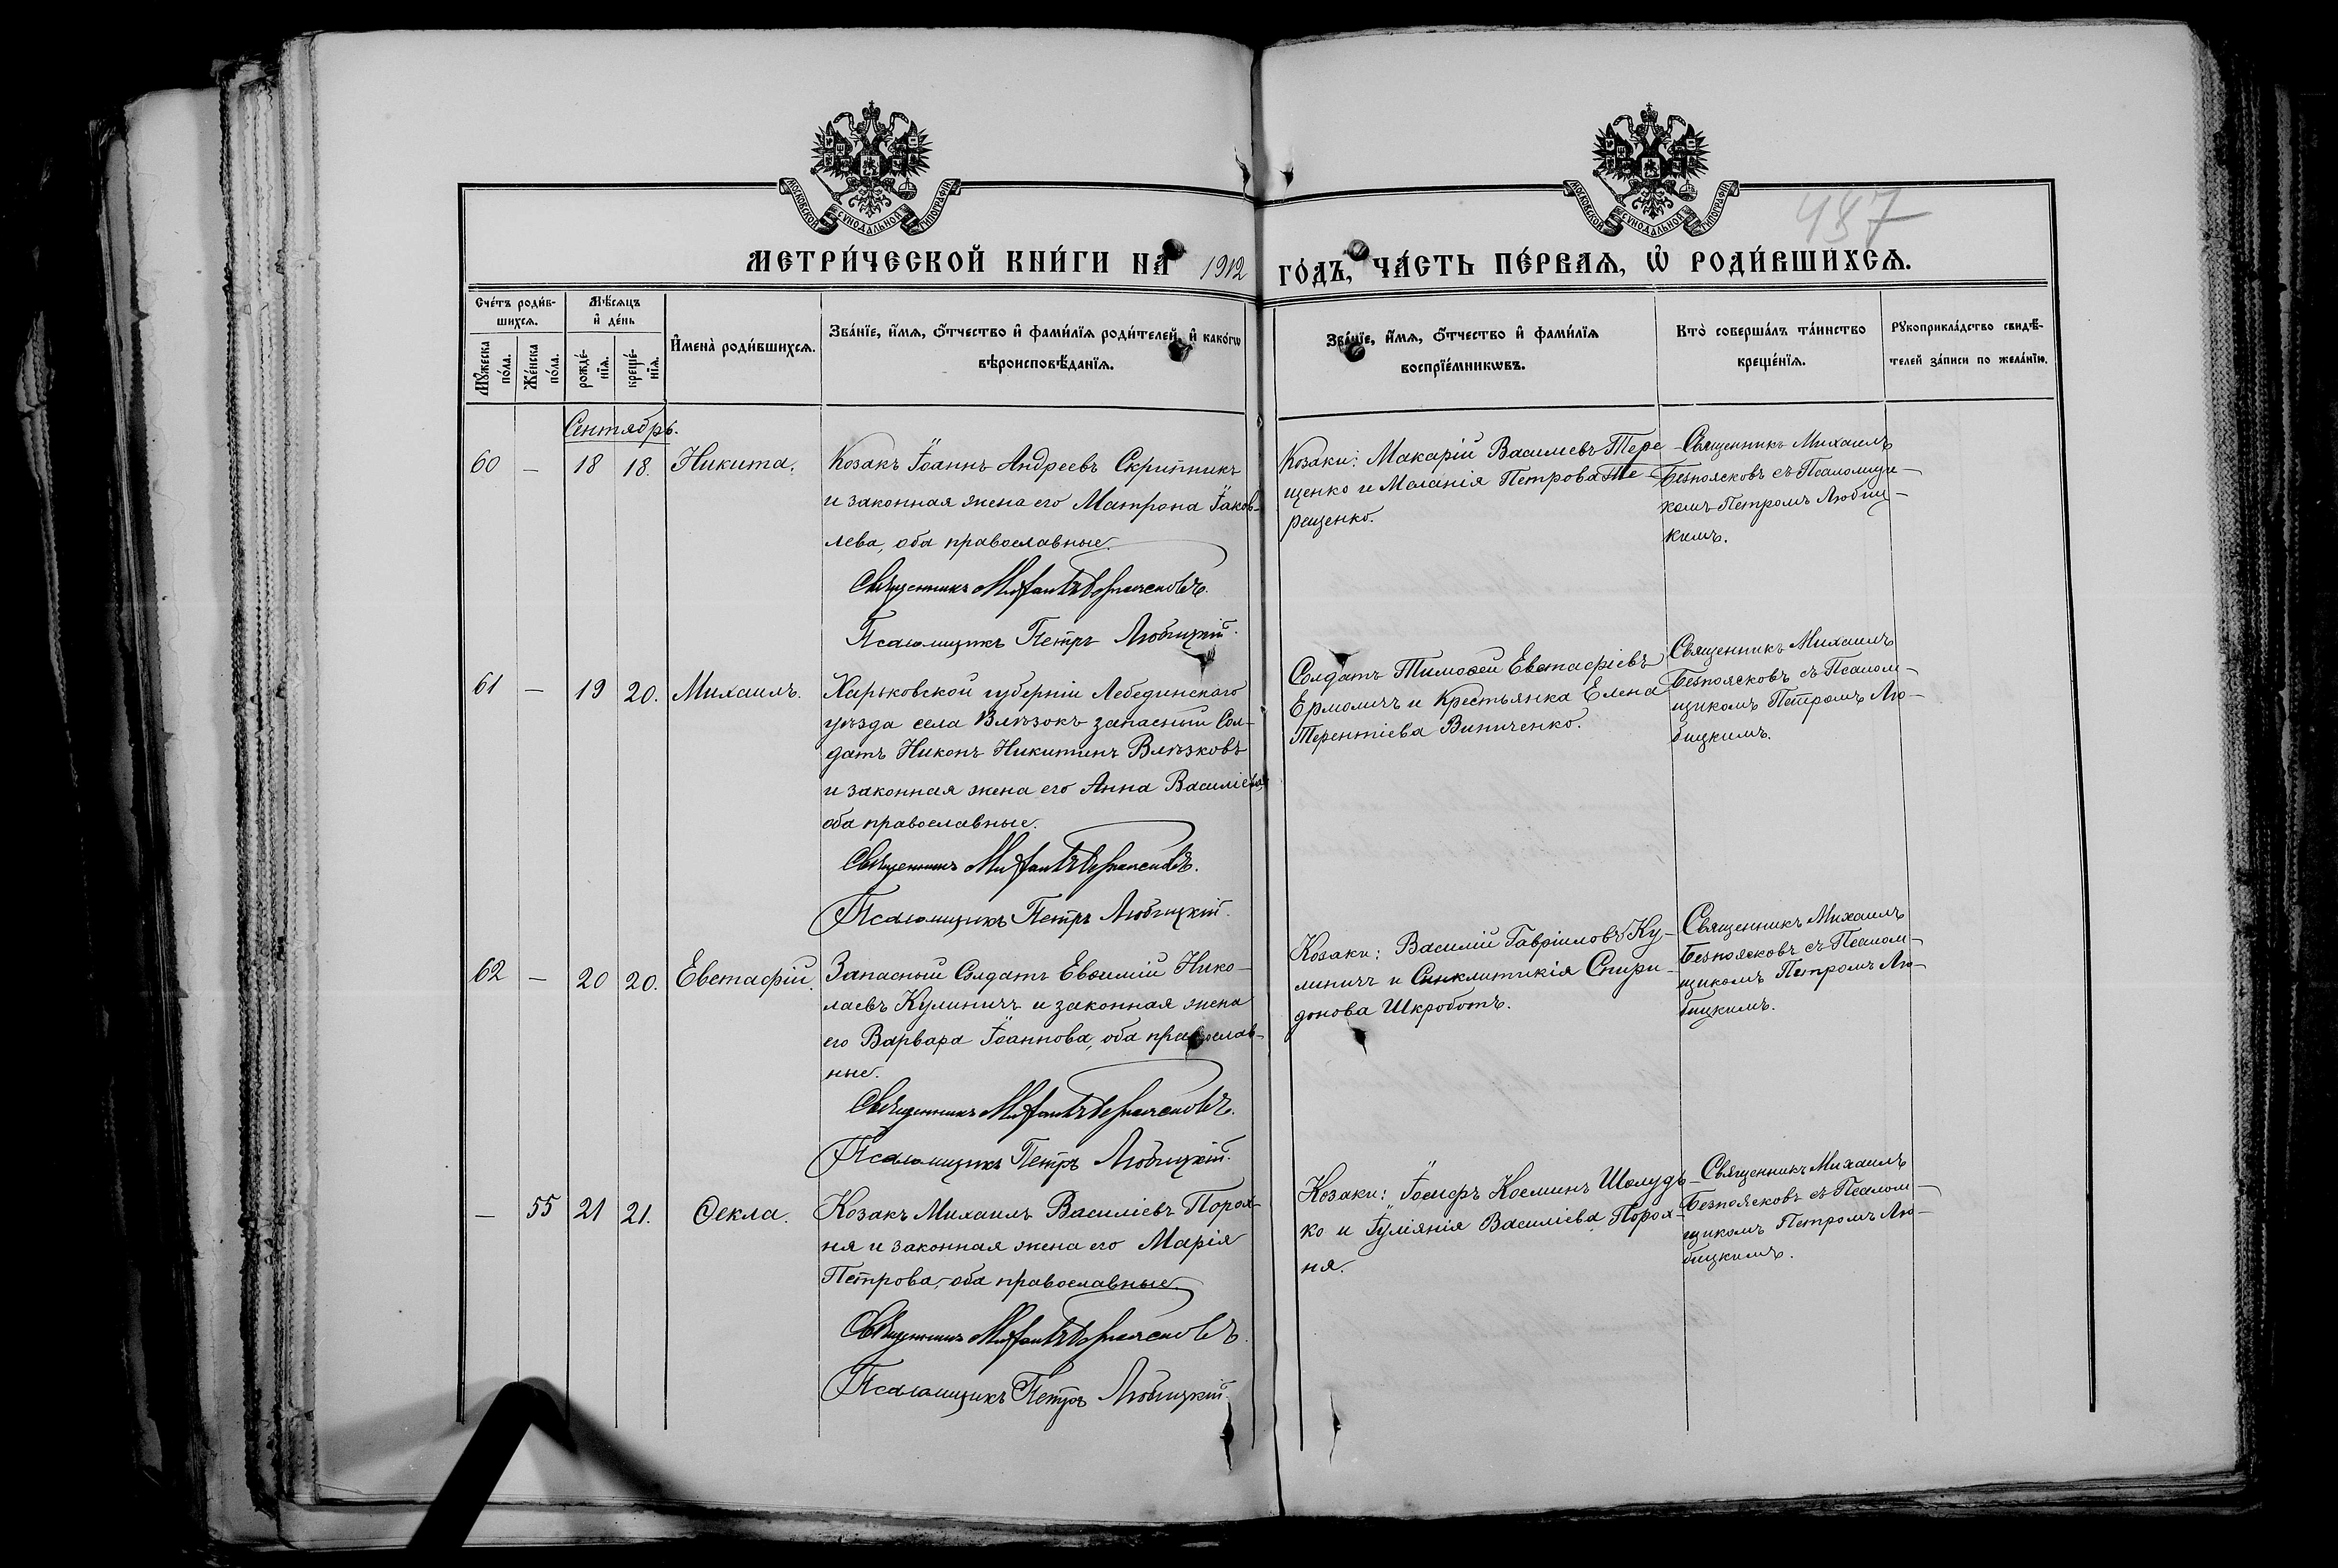 МОСКОВСКОЙ СѴНОДАЛЬНОЙ ТИПОГРАФІИ
МОСКОВСКОЙ СѴНОДАЛЬНОЙ ТИПОГРАФІИ
487
МЕТРИ́ЧЕСКОЙ КНИ́ГИ НА 1912 ГО́ДЪ, ЧА́СТЬ ПЕ́РВАѦ, Ѡ҆ РОДИ́ВШИХСѦ.
Сче́тъ роди́в-
шихсѧ.
Мѣ́сѧцъ
и҆ де́нь
И҆мена̀ роди́вшихсѧ.
Зва́нїе, и҆́мѧ, ѻ҆́тчество и҆ фами́лїѧ роди́телей, и҆ како́гѡ
вѣроисповѣ́данїѧ.
Зва́нїе, и҆́мѧ, ѻ҆́тчество и҆ фами́лїѧ
воспрїе́мникѡвъ.
Кто̀ соверша́лъ та́инство
креще́нїѧ.
Рꙋкоприкла́дство свидѣ́-
телей за́писи по жела́нїю.
Мꙋ́жеска
по́ла.
Же́нска
по́ла.
рожде́-
нїѧ.
креще́-
нїѧ.
Сентябрь.
60 — 18 18. Никита.
Козакъ Іоаннъ Андреевъ Скрипникъ
и законная жена его Матрона Іаков-
лева, оба православные.
Священникъ Михаилъ Безпоясковъ.
Псаломщикъ Петръ Любицкій.
Козаки: Макарій Васильевъ Тере-
щенко и Маланія Петрова Те-
рещенко.
Священникъ Михаилъ
Безпоясковъ съ Псаломщи-
комъ Петромъ Любиц-
кимъ.
61 — 19 20. Михаилъ.
Харьковской губерніи Лебединскаго
уѣзда села Влѣзокъ запасный Сол-
датъ Никонъ Никитинъ Влѣзковъ
и законная жена его Анна Василіева
оба православные.
Священникъ Михаилъ Безпоясковъ.
Псаломщикъ Петръ Любицкій.
Солдатъ Тимоѳей Евстафіевъ
Ермоличъ и Крестьянка Елена
Терентіева Винниченко.
Священникъ Михаилъ
Безпоясковъ съ Псалом-
щикомъ Петромъ Лю-
бицкимъ.
62 — 20 20. Евстафій.
Запасный Солдатъ Евѳимій Нико-
лаевъ Кулиничъ и законная жена
его Варвара Іоаннова, оба православ-
ные.
Священникъ Михаилъ Безпоясковъ.
Псаломщикъ Петръ Любицкій.
Козаки: Василій Гавріиловъ Ку-
линичъ и Синклитикія Спири-
донова Шкроботъ.
Священникъ Михаилъ
Безпоясковъ съ Псалом-
щикомъ Петромъ Лю-
бицкимъ.
— 55 21 21. Ѳекла.
Козакъ Михаилъ Василіевъ Порох-
ня и законная жена его Марія
Петрова, оба православные.
Священникъ Михаилъ Безпоясковъ.
Псаломщикъ Петръ Любицкій.
Козаки: Іосифъ Косминъ Шолудь-
ко и Іуліянія Василіева Порох-
ня.
Священникъ Михаилъ
Безпоясковъ съ Псалом-
щикомъ Петромъ Лю-
бицкимъ.